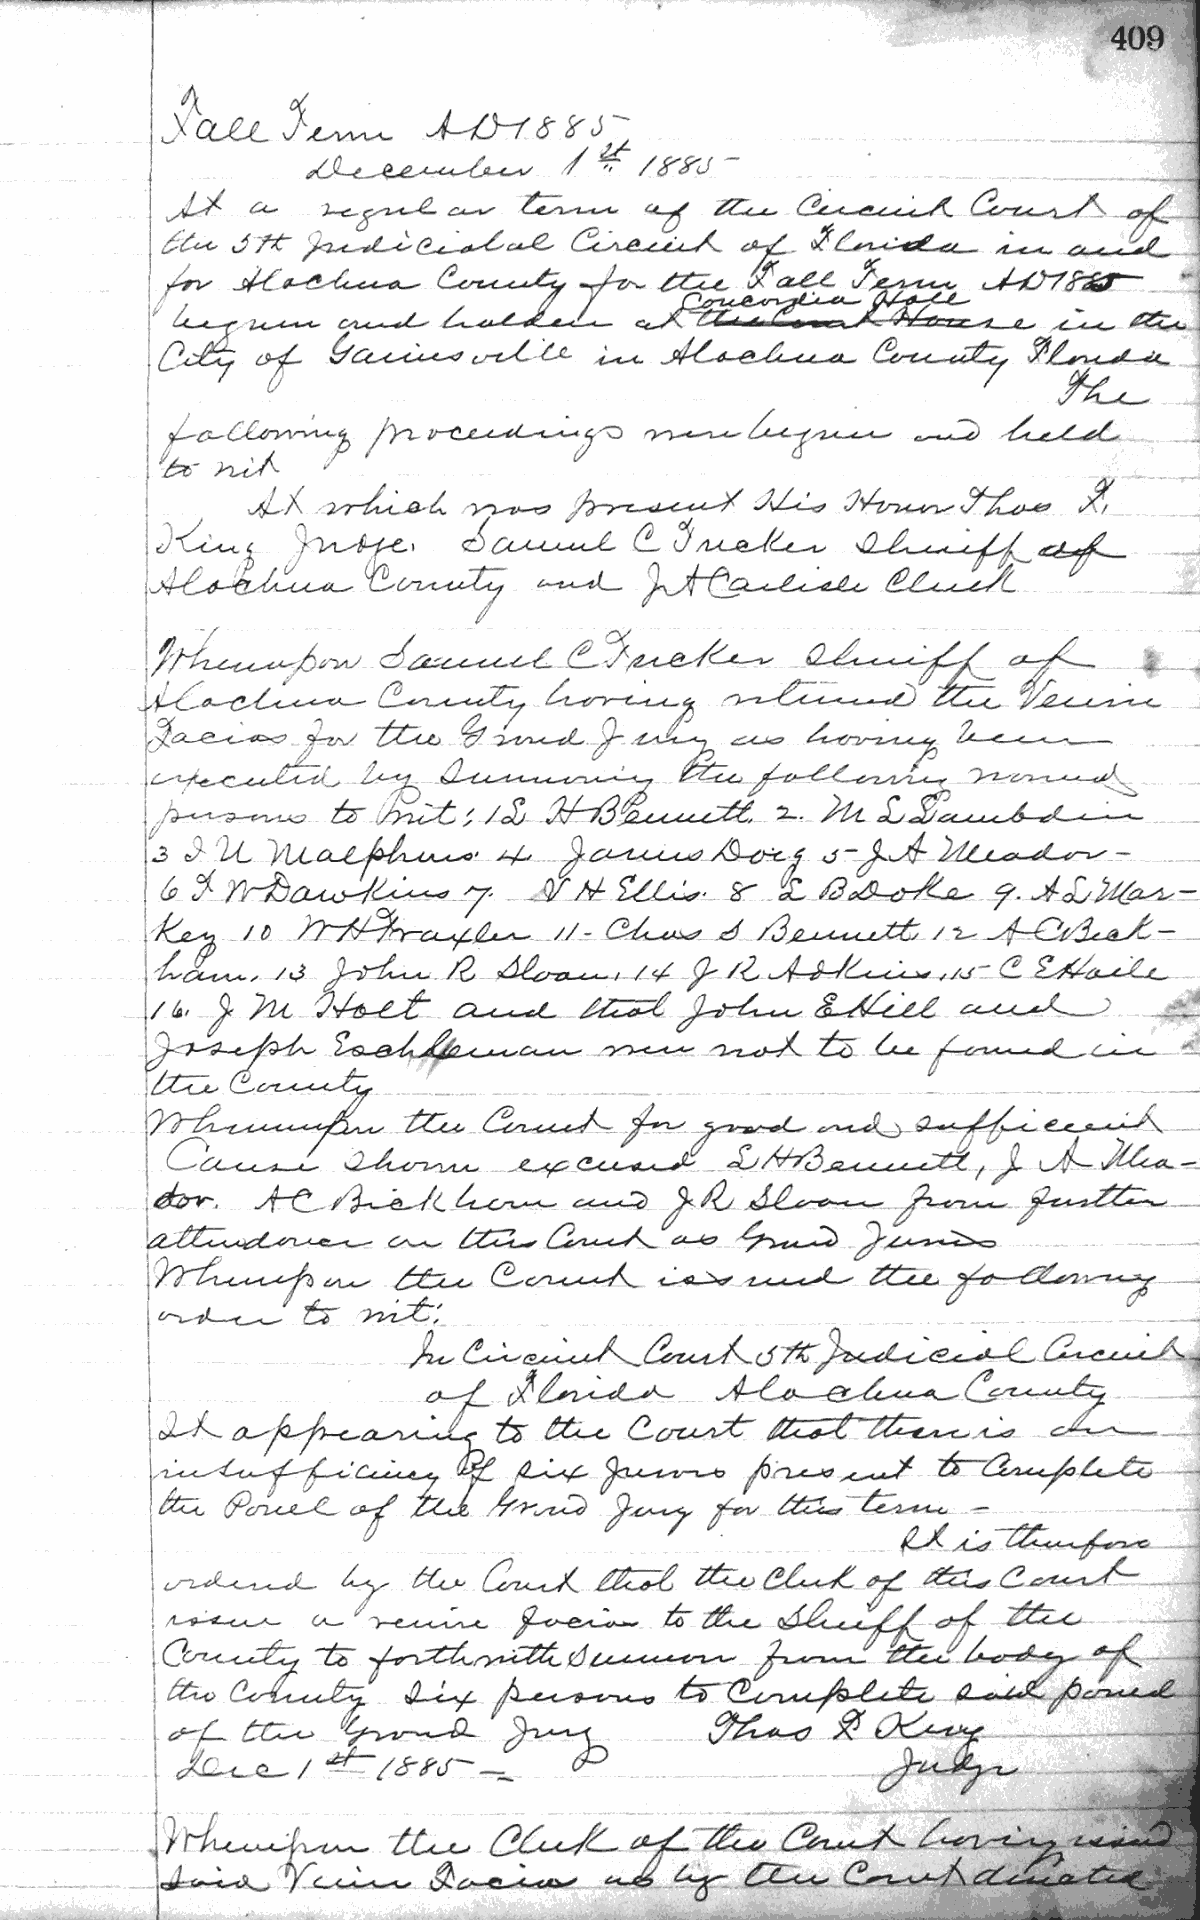 409
Fall Term AD 1885
December 1st 1885
At a regular term of the Circuit Court of
the 5th Judicial Circuit of Florida in and
for Alachua County for the Fall Term AD 1885
Concordia Hall
begun and holden at the Court House in the
City of Gainesville in Alachua County Florida
The
following proceedings were begun and held
to wit
At which was present His Honor Thos F.
King Judge. Samuel C Tucker Sheriff of
Alachua County and J A Carlisle Clerk
Whereupon Samuel C Tucker Sheriff of
Alachua County having returned the Venire
Facias for the Grand Jury as having been
executed by summoning the following named
persons to wit; 1 L H Bennett. 2. M L Lambdin
3 I U Malphurs 4 James Doig 5- J A Meador-
6 F W Dawkins 7. V H Ellis. 8 L B Doke 9. A L Mar-
Key 10 W H Traxler 11- Chas S Bennett 12 A C Beck-
ham. 13 John R Sloan. 14 J R Adkins. 15- C E Haile
16. J M Holt and that John E Hill and
Joseph Eschleman were not to be found in
the County
Whereupon the Court for good and sufficient
Cause Shown excused L H Bennett, J A Mea-
dor. A C Bickham and J R Sloan from further
attendance on this Court as Grand Jurors
Whereupon the Court issued the following
order to wit:
In Circuit Court 5th Judicial Circuit
of Florida Alachua County
It appearing to the Court that there is an
insufficiency of six Jurors present to Complete
the Panel of the Grand Jury for this term -
It is therefore
ordered by the Court that the Clerk of this Court
issue a venire facias to the Sheriff of the
County to forthwith summon from the body of
the County six persons to Complete said panel
of the Grand Jury Thos F King
Dec 1st 1885 - Judge
Whereupon the Clerk of the Court having issued
said Venire Facias as by the Court directed